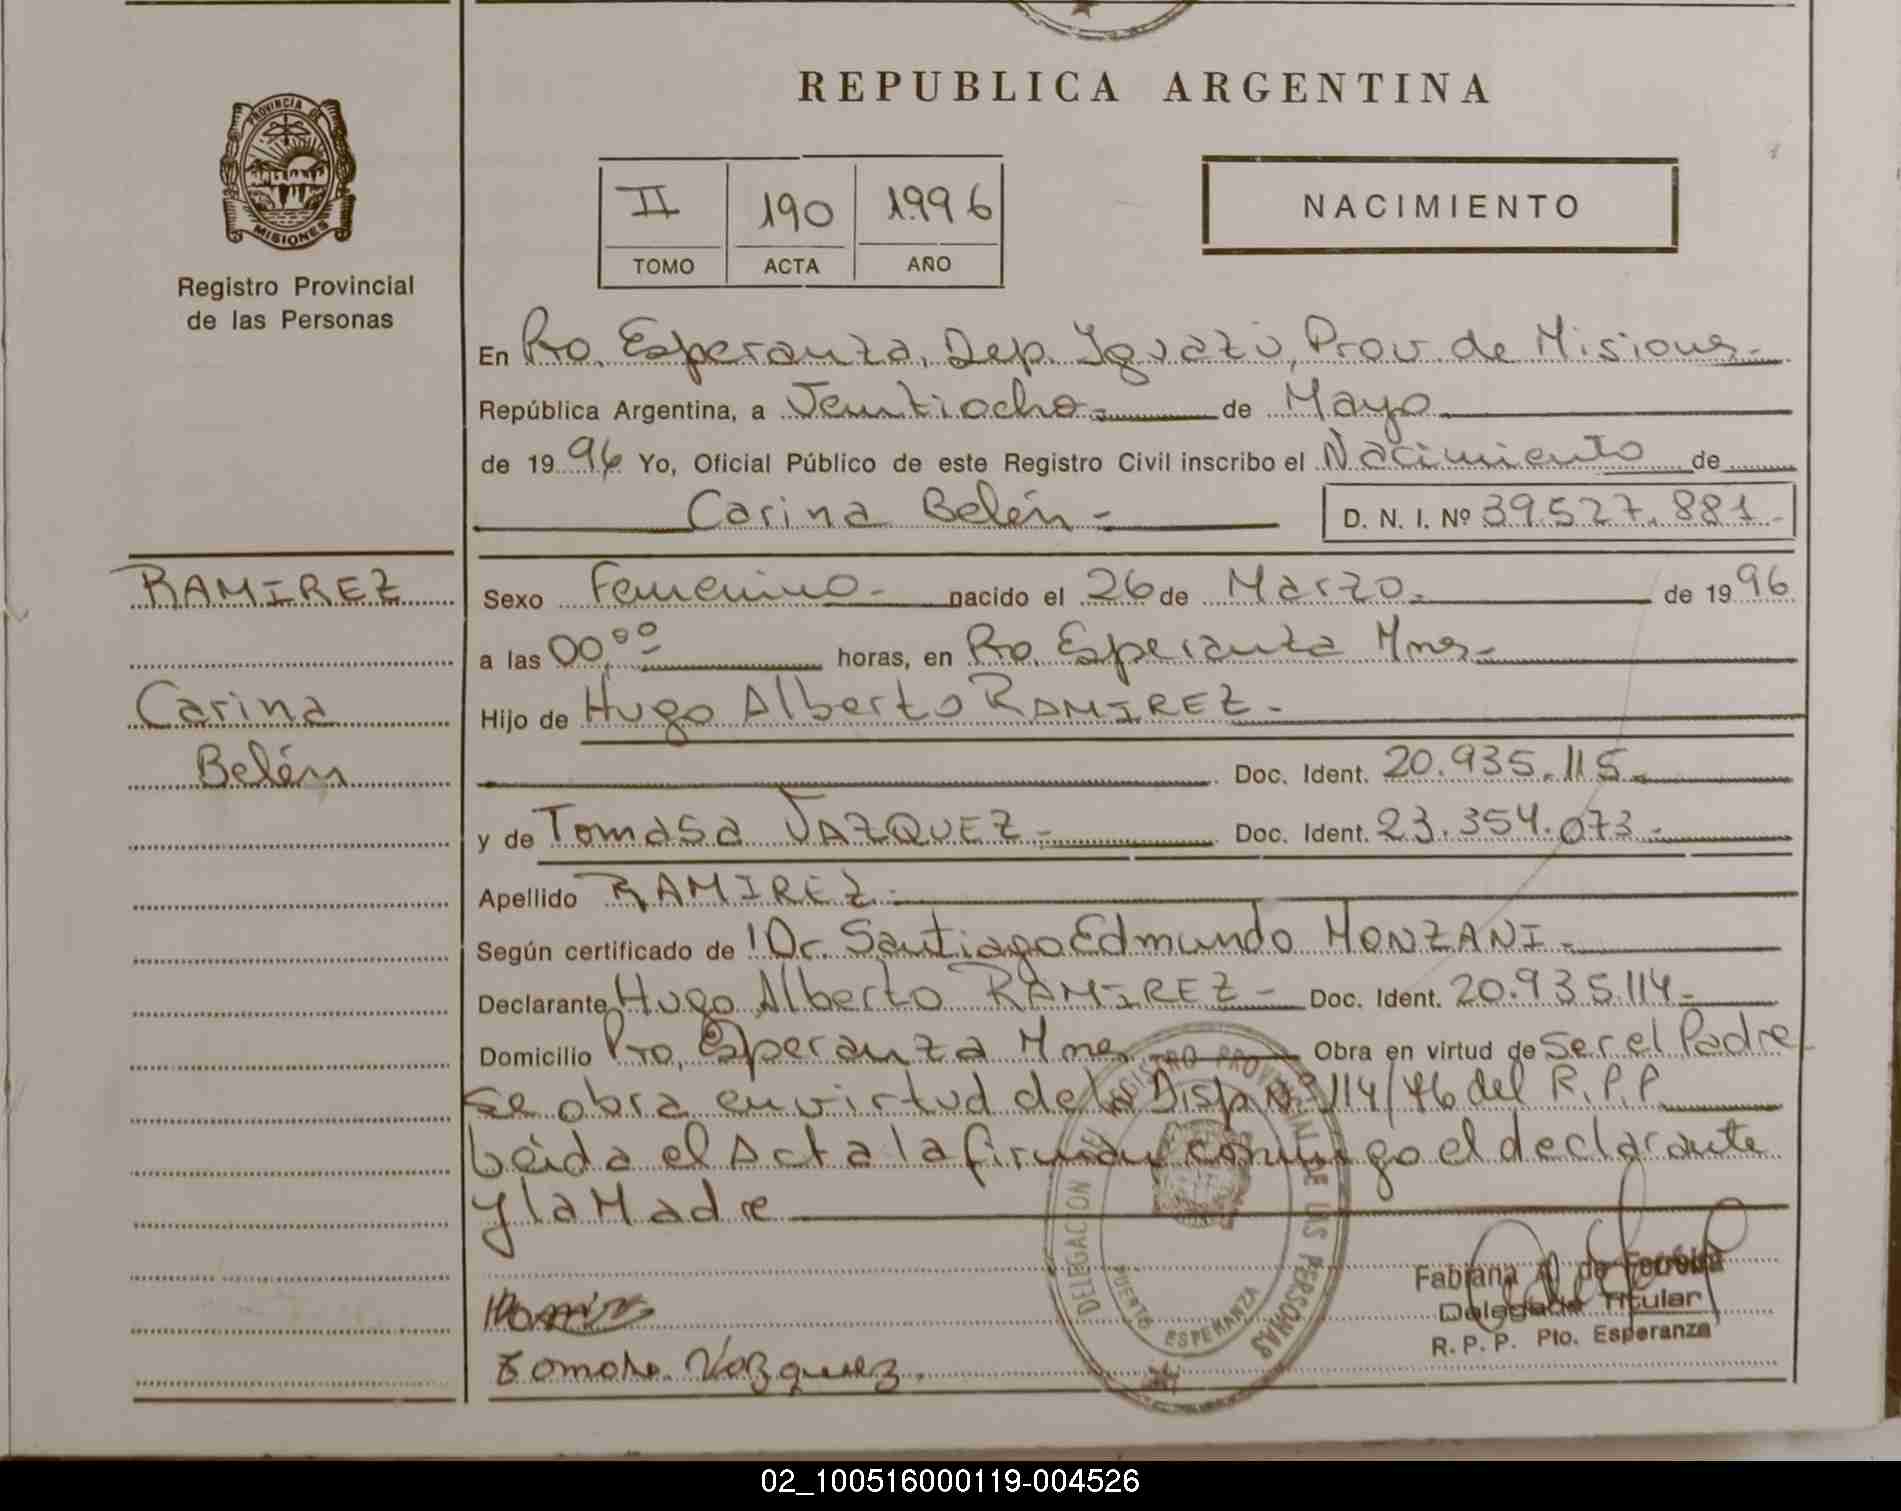 PROVINCIA DE
MISIONES
Registro Provincial
de las Personas
REPUBLICA ARGENTINA
II 190 1996
TOMO ACTA AÑO
NACIMIENTO
En Pto. Esperanza, Dep. Iguazú, Prov. de Misiones-
República Argentina, a Veintiocho- de Mayo
de 19 96 Yo, Oficial Público de este Registro Civil inscribo el Nacimiento de
Carina Belén - D. N. I. Nº 39.527.881.-
RAMIREZ
Carina
Belén
Sexo Femenino- nacido el 26 de Marzo. de 19 96
a las 00,00 horas, en Pto. Esperanza Mnes-
Hijo de Hugo Alberto RAMIREZ-
Doc. Ident. 20.935.115-
y de Tomasa VAZQUEZ- Doc. Ident. 23.354.073-
Apellido RAMIREZ-
Según certificado de Dr. Santiago Edmundo MONZANI-
Declarante Hugo Alberto RAMIREZ- Doc. Ident. 20.935.114-
Domicilio Pto, Esperanza Mnes Obra en virtud de Ser el Padre
se obra en virtud de la Disp Nº 114/76 del R.P.P.
Leida el Acta la firman conmigo el declarante
y la Madre
DELEGACION DEL REGISTRO PROVINCIAL DE LAS PERSONAS
PUERTO ESPERANZA
Fabiana A. de
Delegada Titular
R. P. P. Pto. Esperanza
Tomasa Vazquez.
02_100516000119-004526